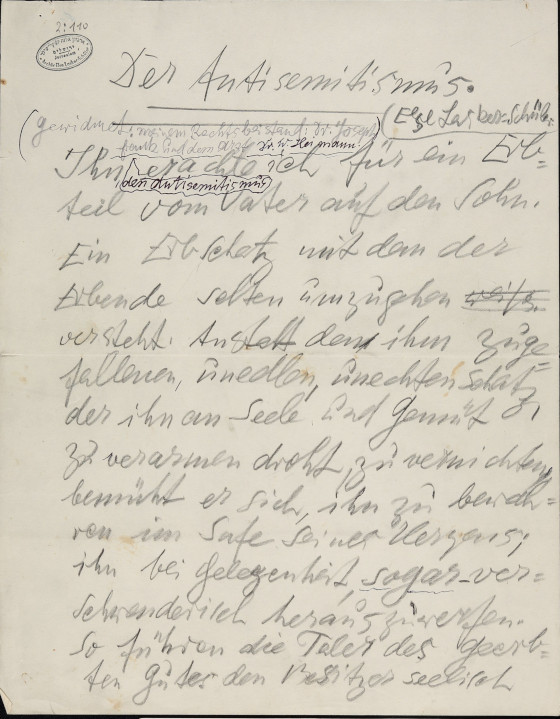 2:110
Der Antisemitismus.
(Else Lasker-Schüler
(gewidmet: meinem Rechtsbeistand: Dr. Josef
und dem Arzt Dr. W. Hermann.
Ihn erachte ich für ein Erb=
den Antisemitismus
teil vom Vater auf den Sohn.
Ein Erbschatz mit dem der
Erbende selten umzugehen
versteht. Anstatt den ihm zuge
fallenen, unedlen, unechten Schatz
der ihn an Seele und Gemüt
zu verarmen droht, zu vernichten,
bemüht er sich, ihn zu bewah=
ren im Safe seines Herzens;
ihn bei Gelegenheit, sogar ver=
schwenderisch herauszuwerfen.
So führen die Taler des geerb=
ten Gutes den Besitzer seelisch